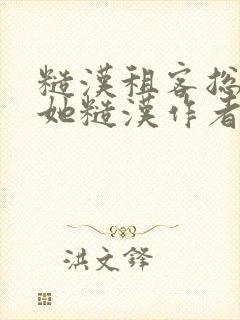 糙漢租客总
她糙漢作者
洪文鋒